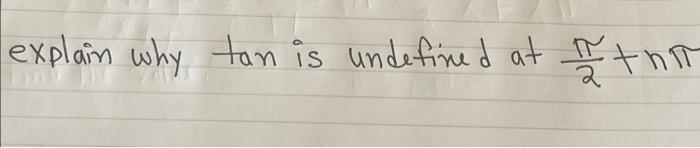 explain why tan is undefined at π/2 + nπ